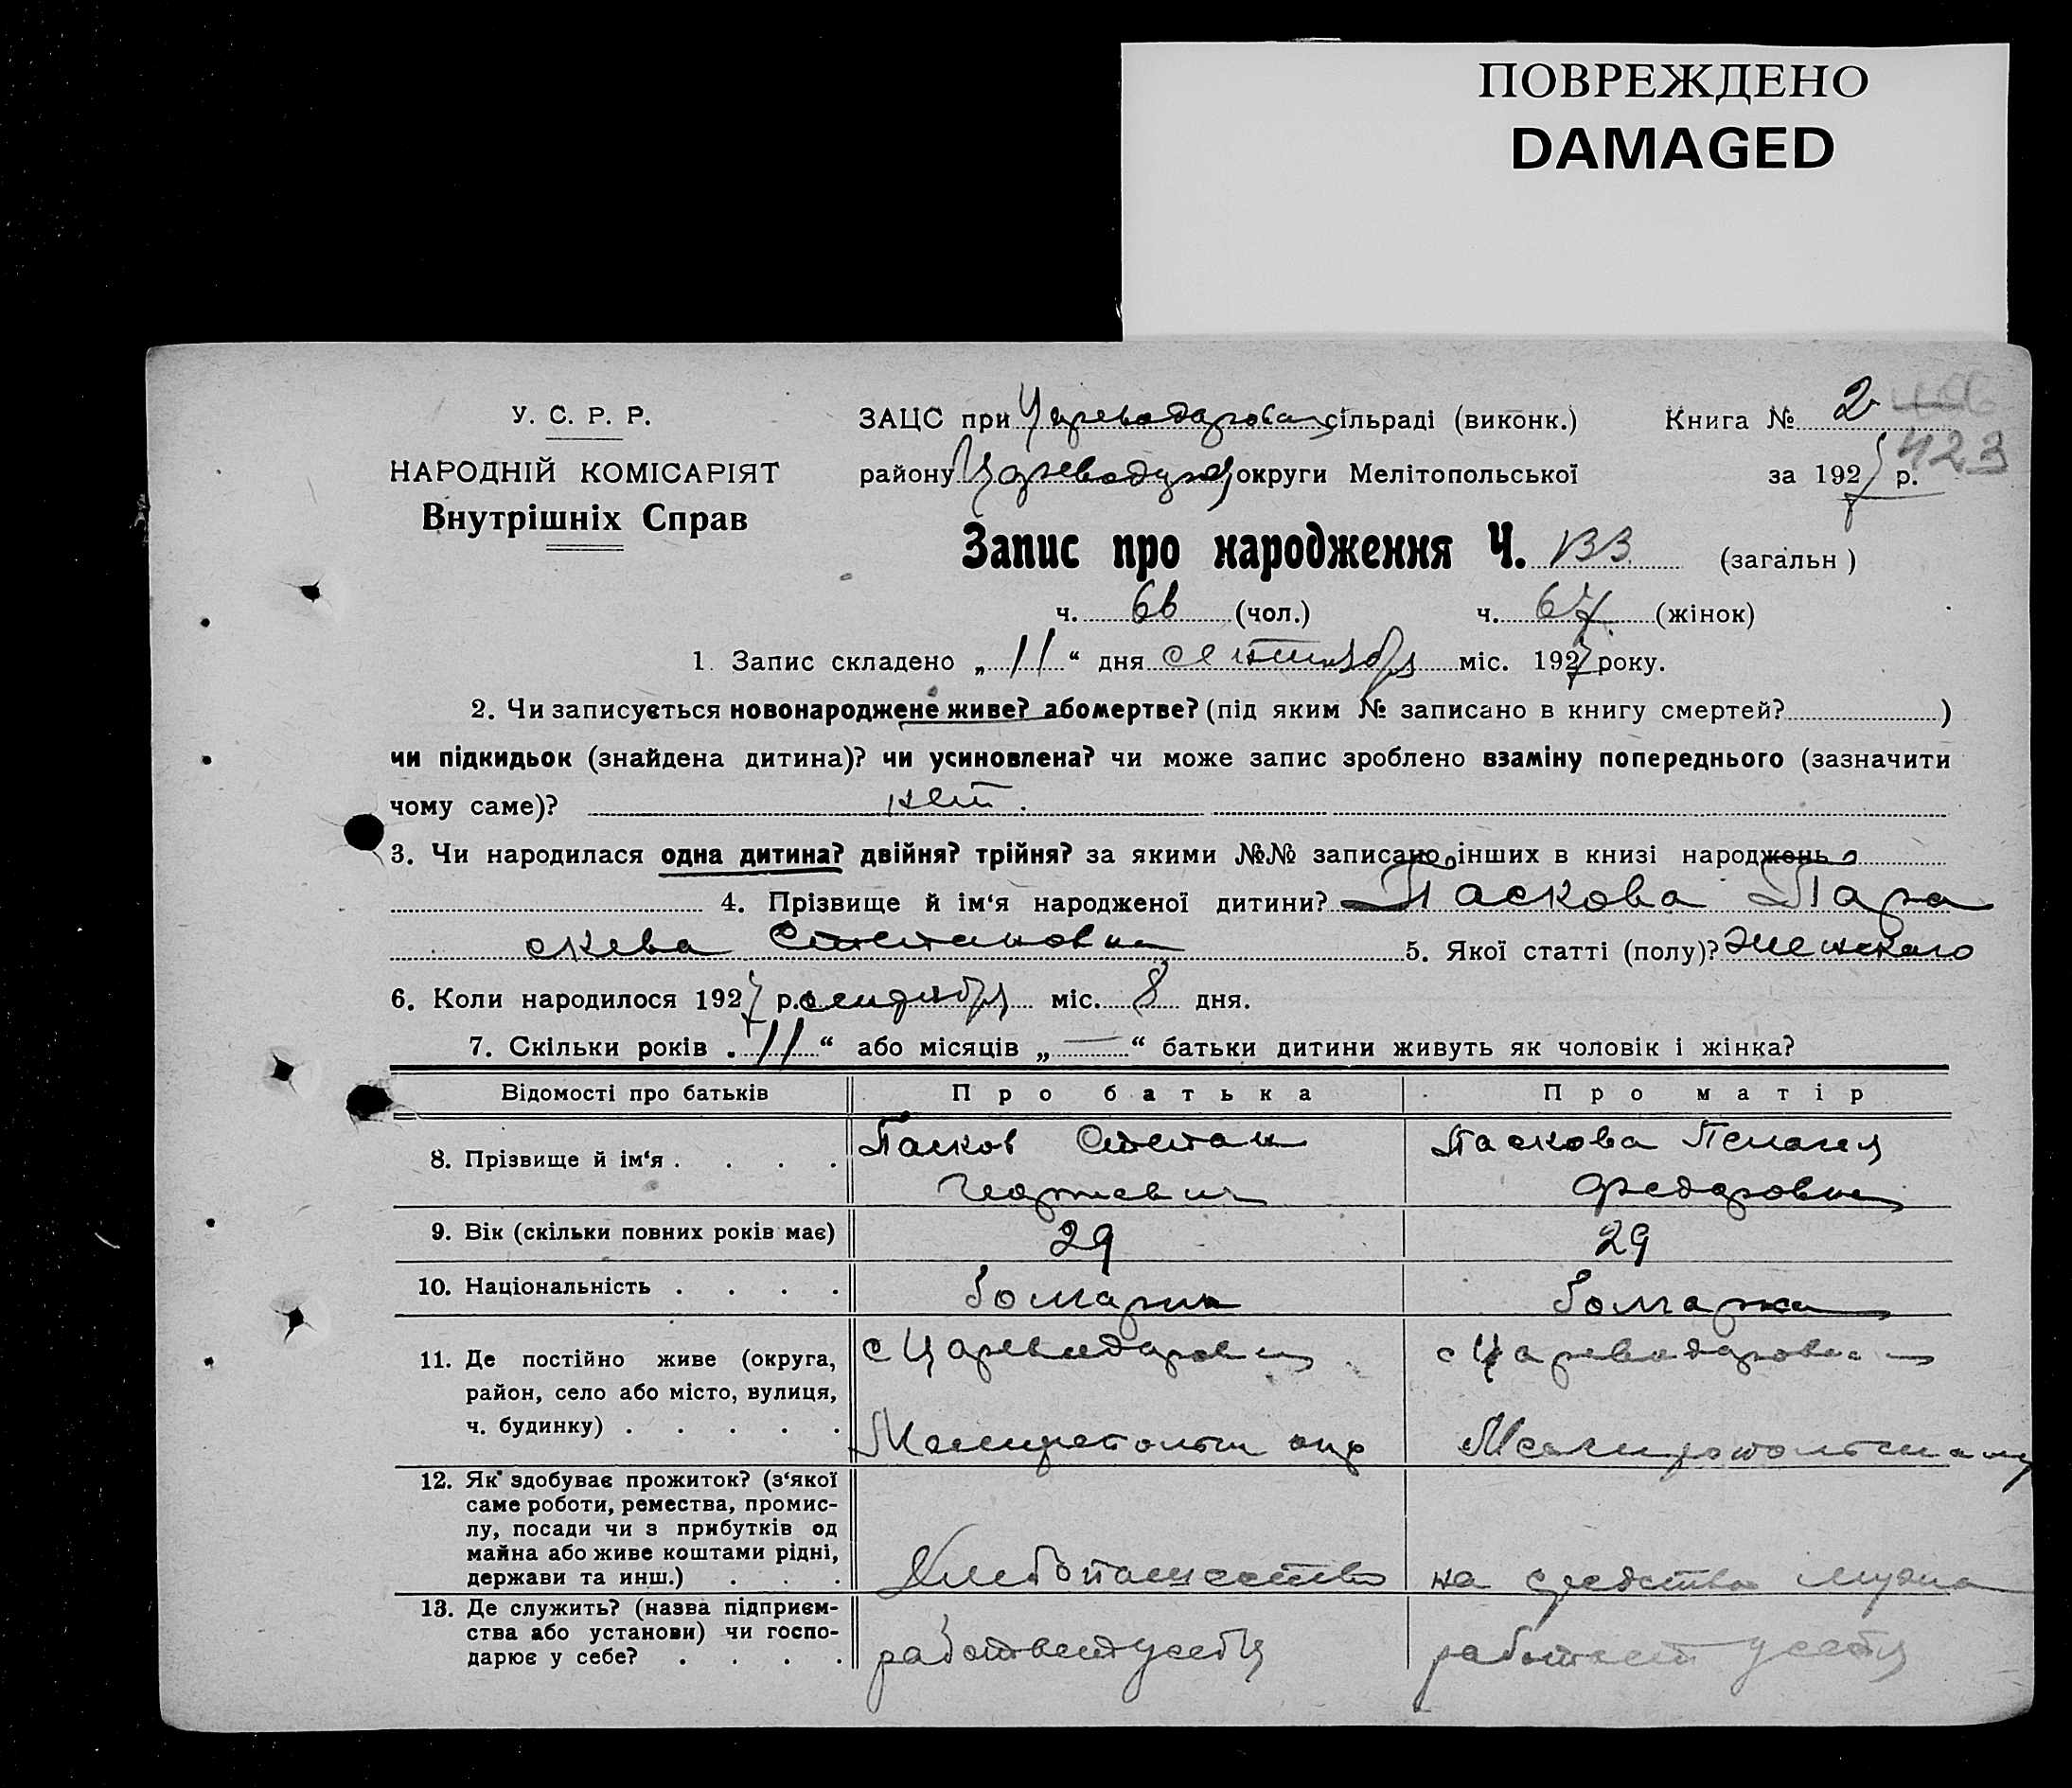 ПОВРЕЖДЕНО
DAMAGED
У. С. Р. Р.
НАРОДНІЙ КОМІСАРІЯТ
Внутрішніх Справ
ЗАЦС при сільраді (виконк.)
Книга № 2
району округи Мелітопольської
за 1927 р.
423
Запис про народження Ч. 133 (загальн)
ч. 66 (чол.) ч. 67 (жінок)
1. Запис складено „11“ дня сентября міс. 1927 року.
2. Чи записується новонароджене живе? або мертве? (під яким № записано в книгу смертей? )
чи підкидьок (знайдена дитина)? чи усиновлена? чи може запис зроблено взаміну попереднього (зазначити
чому саме)? нет.
3. Чи народилася одна дитина? двійня? трійня? за якими №№ записано інших в книзі народжень
4. Прізвище й ім‘я народженої дитини? Паскова Пара
скева Степановна 5. Якої статті (полу)? женского
6. Коли народилося 1927 р. сентября міс. 8 дня.
7. Скільки років „11“ або місяців „—“ батьки дитини живуть як чоловік і жінка?
Відомості про батьків Про батька Про матір
8. Прізвище й ім‘я . . . . Пасков Степан Паскова Пелагея
Георгиевич Федоровна
9. Вік (скільки повних років має) 29 29
10. Національність . . . . болгарин болгарка
11. Де постійно живе (округа, с Цареводаровка с Цареводаровка
район, село або місто, вулиця,
ч. будинку) . . . . . Мелитополск окр Мелитополск
12. Як здобуває прожиток? (з‘якої
саме роботи, ремества, промис-
лу, посади чи з прибутків од
майна або живе коштами рідні,
держави та инш.) . . . Хлебопашество на средства мужа
13. Де служить? (назва підприєм-
ства або установи) чи госпо-
дарює у себе? . . . . работает у себя работает у себя